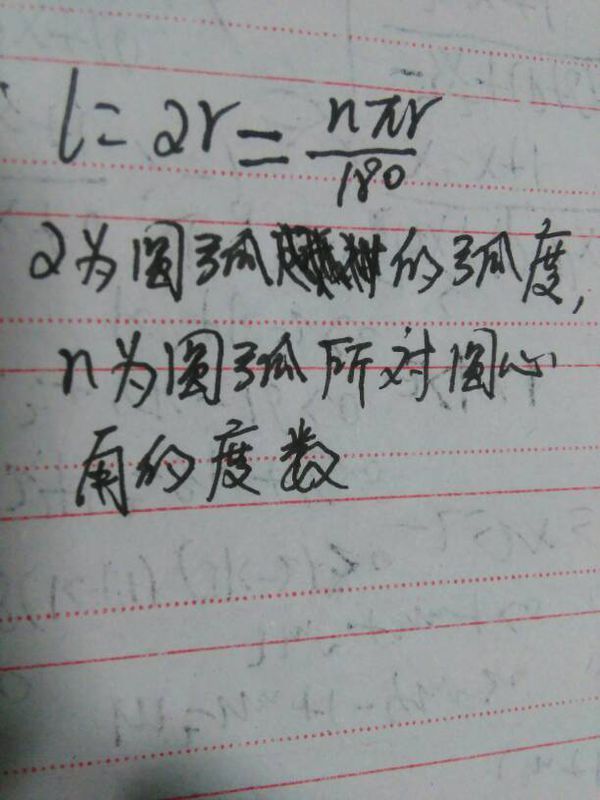 l = αr = nπr/180
α为圆弧的弧度,
n为圆弧所对圆心
角的度数